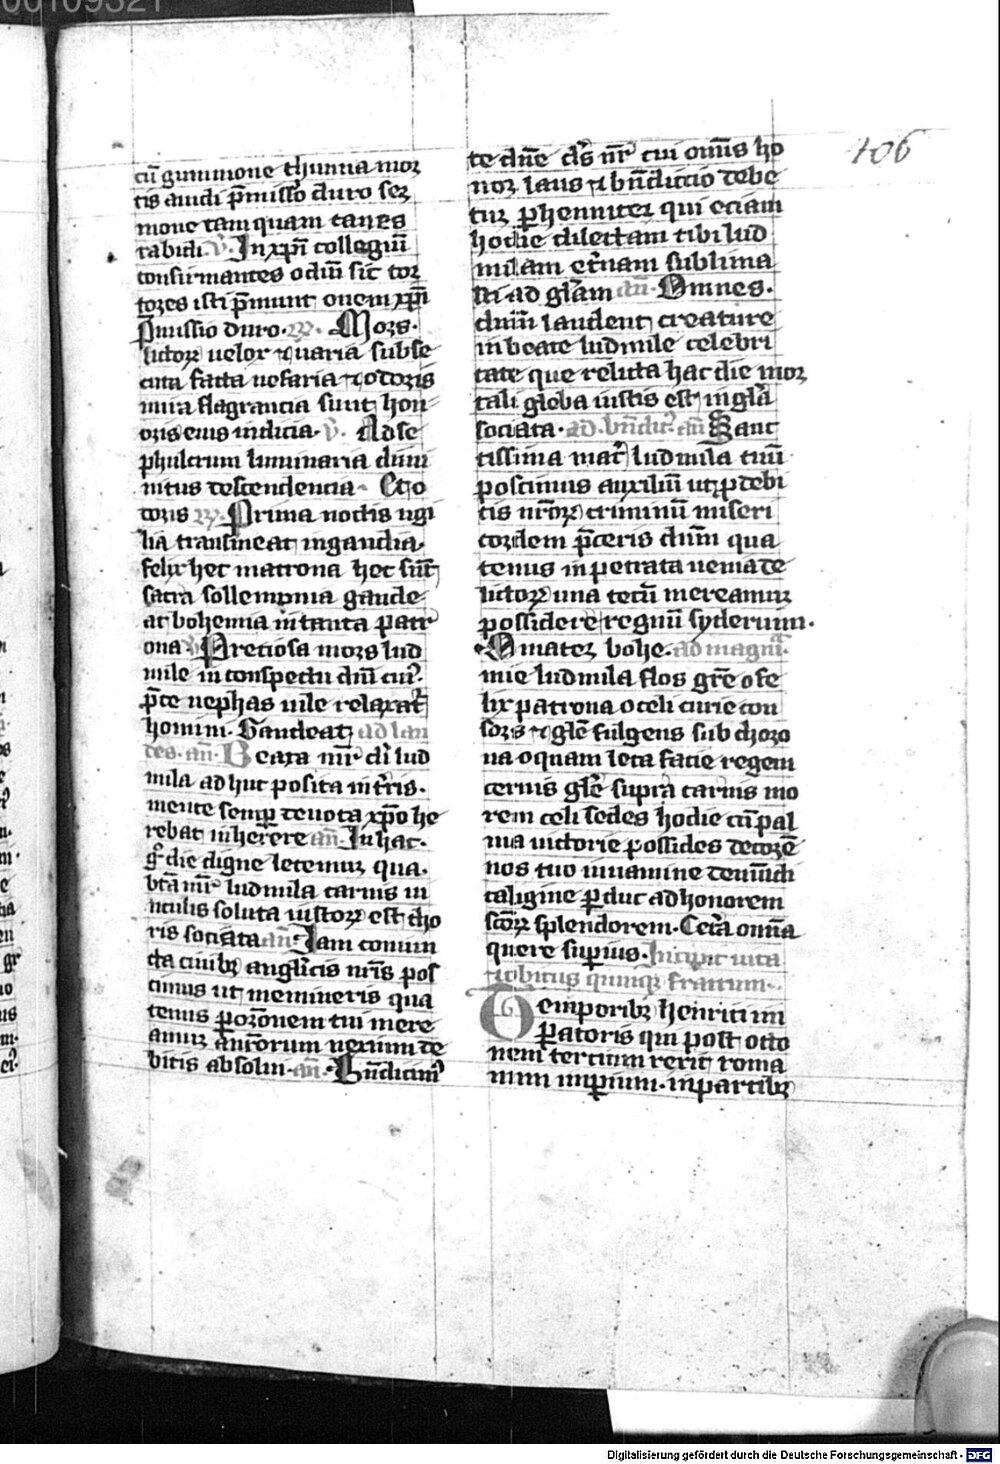 106
cū gummone thunna moꝛ
tis audi p̄misso duro seꝛ
mone tamquam canes
rabidi. v̄. In xp̄i collegiū
consurmantes odiū sic toꝛ
toꝛes isti p̄munt ouem xp̄i
p̄missio duro. ꝶ. Moꝛs.
lictoꝝ uelox ⁊ uaria subse
cuta facta nefaria ⁊ odoꝛis
mira flagrancia sunt hon
oꝛis eius indicia. v̄. Ad se
phulcrum luminaria diui
nitus descendencia. Et o
doꝛis ꝶ. Prima noctis uigi
lia transmeat in gaudia
felix hec matrona hec sūt
sacra sollempnia gaude
at bohemia in tanta patr
ona v̄ Preciosa moꝛs lud
mile in conspectu dn̄i cuiꝰ
p̄ce nephas uile relaxat᷑
homini. Gaudeat ad lau
des. an̄. Beata nr̄ dī lud
mila ad huc posita in tr̄is.
mente semꝑ deuota xp̄o he
rebat inherere an̄. In hac
gͦ die digne letemur qua.
bt̄a nr̄ ludmila carnis ui
nculis soluta iustoꝝ est cho
ris sociata an̄. Iam comun
cta ciuibꝫ anglicis nr̄is pos
cimus ut memineris qua
tenus ꝑoꝛōnem tui mere
amur āucōrum uerum de
bitis absolui. an̄. Bn̄dicimꝰ
te dn̄e ds̄ nr̄ cui omīs ho
noꝛ laus ⁊ bn̄diccio debe
tur ꝑhenniter qui eciam
hodie dilectam tibi lud
milam et̄nam sublima
sti ad gl̄am an̄. Omnes.
dn̄m laudent creature
in beate ludmile celebri
tate que reluta hac die moꝛ
tali gleba iustis est in gl̄a
sociata. ad. bn̄dicꝰ. an̄ Sanc
tissima mat̄ ludmila tuū
poscimus auxiliū ut ꝓ debi
tis nr̄oꝝ criminū miseri
coꝛdem p̄ceris dn̄m qua
tenus inpetrata uenia de
lictoꝝ una tecū mereamur
possidere regnū syderum.
O mater bohe. ad magni.
mie ludmila flos gr̄e o fe
lix patrona o celi curie con
soꝛs ⁊ gl̄e fulgens sub choꝛo
na o quam leta facie regem
cernis gl̄e supra carnis mo
rem celi sedes hodie cū pal
ma victorie possides decoꝛē
nos tuo iuuamine deuīcti
caligine ꝑduc ad honorem
sc̄oꝝ splendorem. Cet̄a omīa
quere suꝑius. Incipit uita
⁊ obitus quinqꝫ fratrum.
Temporibꝫ heinrici im
ꝑatoris qui post otto
nem tercium rexit roma
num imꝑium. in partibꝫ
Digitalisierung gefördert durch die Deutsche Forschungsgemeinschaft - DFG